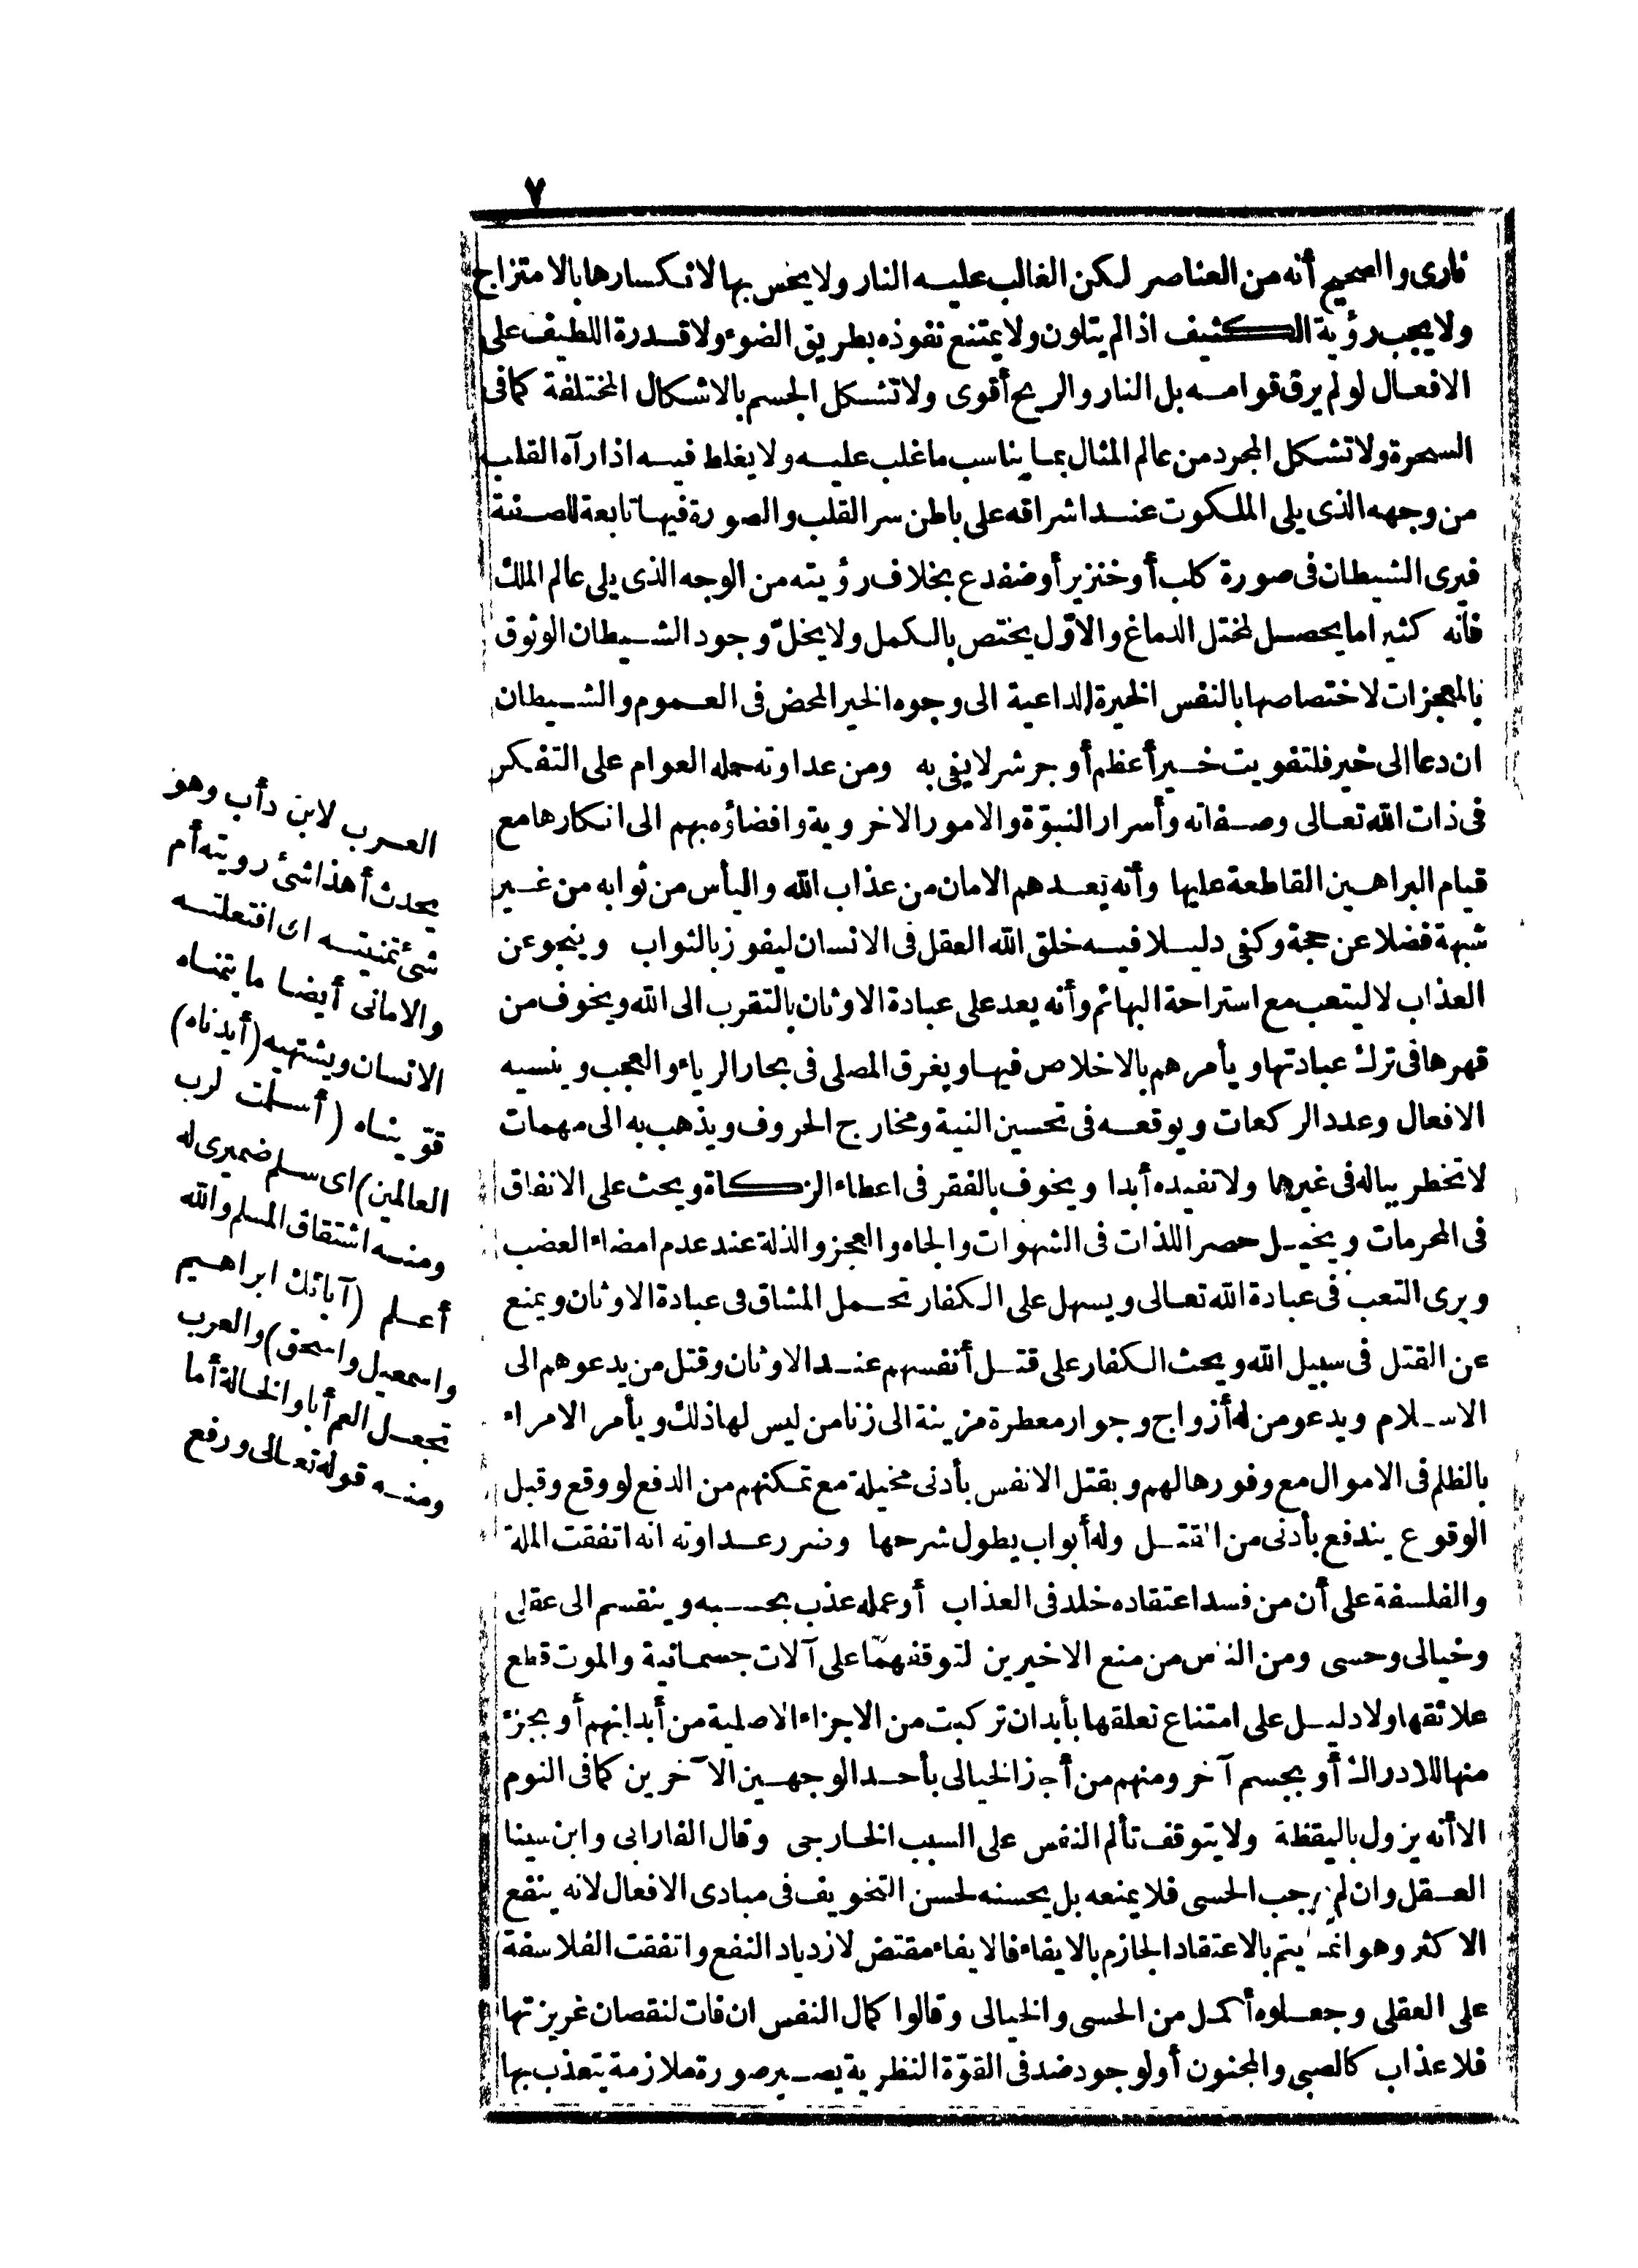 ٧
نارى والصحيح أنه من العناصر لكن الغالب عليه النار ولا يحس بها لانكسارها بالامتزاج
ولا يجب رؤية الكثيف اذا لم يتلون ولا يمتنع نفوذه بطريق الضوء ولا قدرة اللطيف على
الافعال لو لم يرق قوامه بل النار والريح أقوى ولا تشكل الجسم بالاشكال المختلفة كما فى
السحرة ولا تشكل المجرد من عالم المثال بما يناسب ما غلب عليه ولا يغلط فيه اذا رآه القلب
من وجهه الذى يلى الملكوت عند اشراقه على باطن سر القلب والصورة فيها تابعة للصفة
فيرى الشيطان فى صورة كلب أو خنزير أو ضفدع بخلاف رؤيته من الوجه الذى يلى عالم الملك
فانّه كثيرا ما يحصل لمختل الدماغ والاوّل يختص بالكمل ولا يخلّ وجود الشيطان الوثوق
بالمعجزات لاختصاصها بالنفس الخيرة الداعية الى وجوه الخير المحض فى العموم والشيطان
ان دعا الى خير فلتفويت خير أعظم أو جر شر لا يفى به ومن عداوته حمله العوام على التفكر
فى ذات الله تعالى وصفاته وأسرار النبوّة والامور الاخروية وافضاؤه بهم الى انكارها مع
قيام البراهين القاطعة عليها وأنه يعدهم الامان من عذاب الله واليأس من ثوابه من غير
شبهة فضلا عن حجة وكفى دليلا فيه خلق الله العقل فى الانسان ليفوز بالثواب وينجو عن
العذاب لا ليتعب مع استراحة البهائم وأنه يعد على عبادة الاوثان بالتقرب الى الله ويخوف من
قهرها فى ترك عبادتها ويأمرهم بالاخلاص فيها ويغرق المصلى فى بحار الرياء والعجب وينسيه
الافعال وعدد الركعات ويوقعه فى تحسين النية ومخارج الحروف ويذهب به الى مهمات
لا تخطر بباله فى غيرها ولا تفيده أبدا ويخوف بالفقر فى اعطاء الزكاة ويحث على الانفاق
فى المحرمات ويخيل حصر اللذات فى الشهوات والجاه والعجز والذلة عند عدم امضاء الغضب
ويرى التعب فى عبادة الله تعالى ويسهل على الكفار تحمل المشاق فى عبادة الاوثان ويمنع
عن القتل فى سبيل الله ويحث الكفار على قتل أنفسهم عند الاوثان وقتل من يدعوهم الى
الاسلام ويدعو من له أزواج وجوار معطرة مزينة الى زنا من ليس لها ذلك ويأمر الامراء
بالظلم فى الاموال مع وفورها لهم وبقتل الانفس بأدنى مخيلة مع تمكنهم من الدفع لو وقع وقبل
الوقوع يندفع بأدنى من القتل وله أبواب يطول شرحها وضرر عداوته انه اتفقت الملة
والفلسفة على أن من فسد اعتقاده خلد فى العذاب أو عمله عذب بحسبه وينقسم الى عقلى
وخيالى وحسى ومن الناس من منع الاخيرين لتوقفهما على آلات جسمانية والموت قطع
علائقها ولا دليل على امتناع تعلقها بأبدان تركبت من الاجزاء الاصلية من أبدانهم أو بجزء
منها للادراك أو بجسم آخر ومنهم من أجاز الخيالى بأحد الوجهين الآخرين كما فى النوم
الا أنه يزول باليقظة ولا يتوقف تألم النفس على السبب الخارجى وقال الفارابى وابن سينا
العقل وان لم يوجب الحسى فلا يمنعه بل يحسنه لحسن التخويف فى مبادى الافعال لانه ينفع
الاكثر وهو انما يتم بالاعتقاد الجازم بالايفاء فالايفاء مقتض لازدياد النفع واتفقت الفلاسفة
على العقلى وجعلوه أكمل من الحسى والخيالى وقالوا كمال النفس ان فات لنقصان غريزتها
فلا عذاب كالصبى والمجنون أو لوجود ضد فى القوّة النظرية يصير صورة ملازمة يتعذب بها
العرب لابن دأب وهو
يحدث أهذا شئ رويته أم
شئ تمنيته اى افتعلته
والامانى أيضا ما يتمناه
الانسان ويشتهيه (أيدناه)
قوّيناه (أسلمت لرب
العالمين) اى سلم ضميرى له
ومنه اشتقاق المسلم والله
أعلم (آبائك ابراهيم
واسمعيل واسحق) والعرب
تجعل العم أبا والخالة أما
ومنه قوله تعالى ورفع